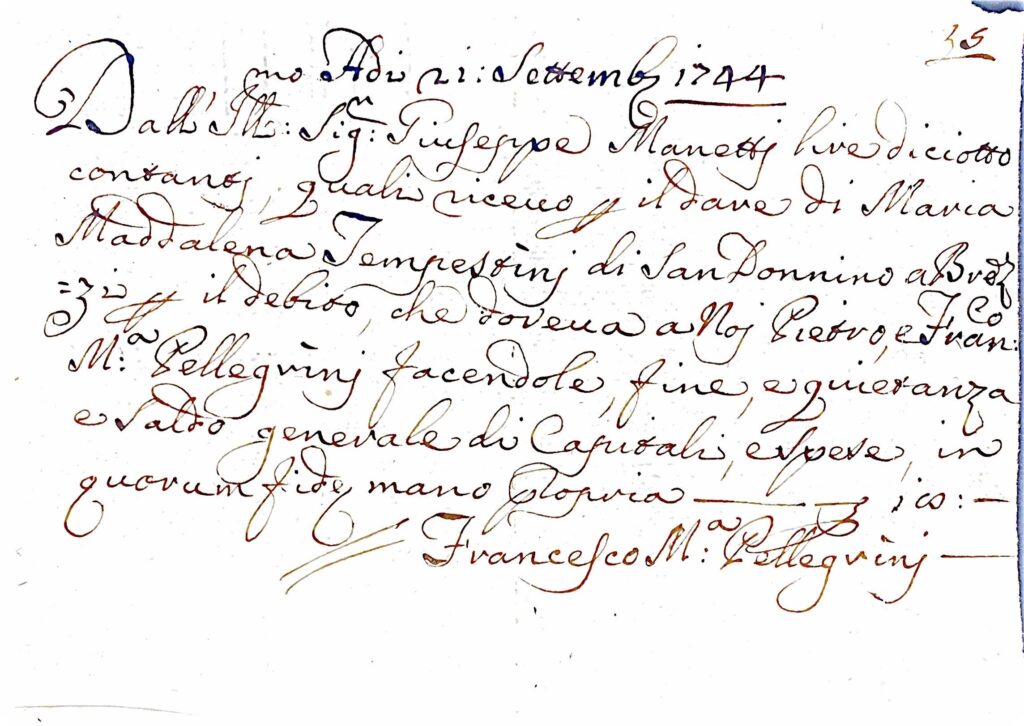 35
Adi 21: Settemb 1744
Dall' Ill:mo Sig:n Giuseppe Manettj lire diciotto
contantj, quali riceuo p il dare di Maria
Maddalena Tempestinj di San Donnino a Broz
=zi p il debito, che doveua a Noj Pietro, e Fran:co
M:a Pellegrinj facendole, fine, e quietanza
e saldo generale di Capitali, e spese, in
quorum fide mano propria —
Francesco M:a Pellegrinj —